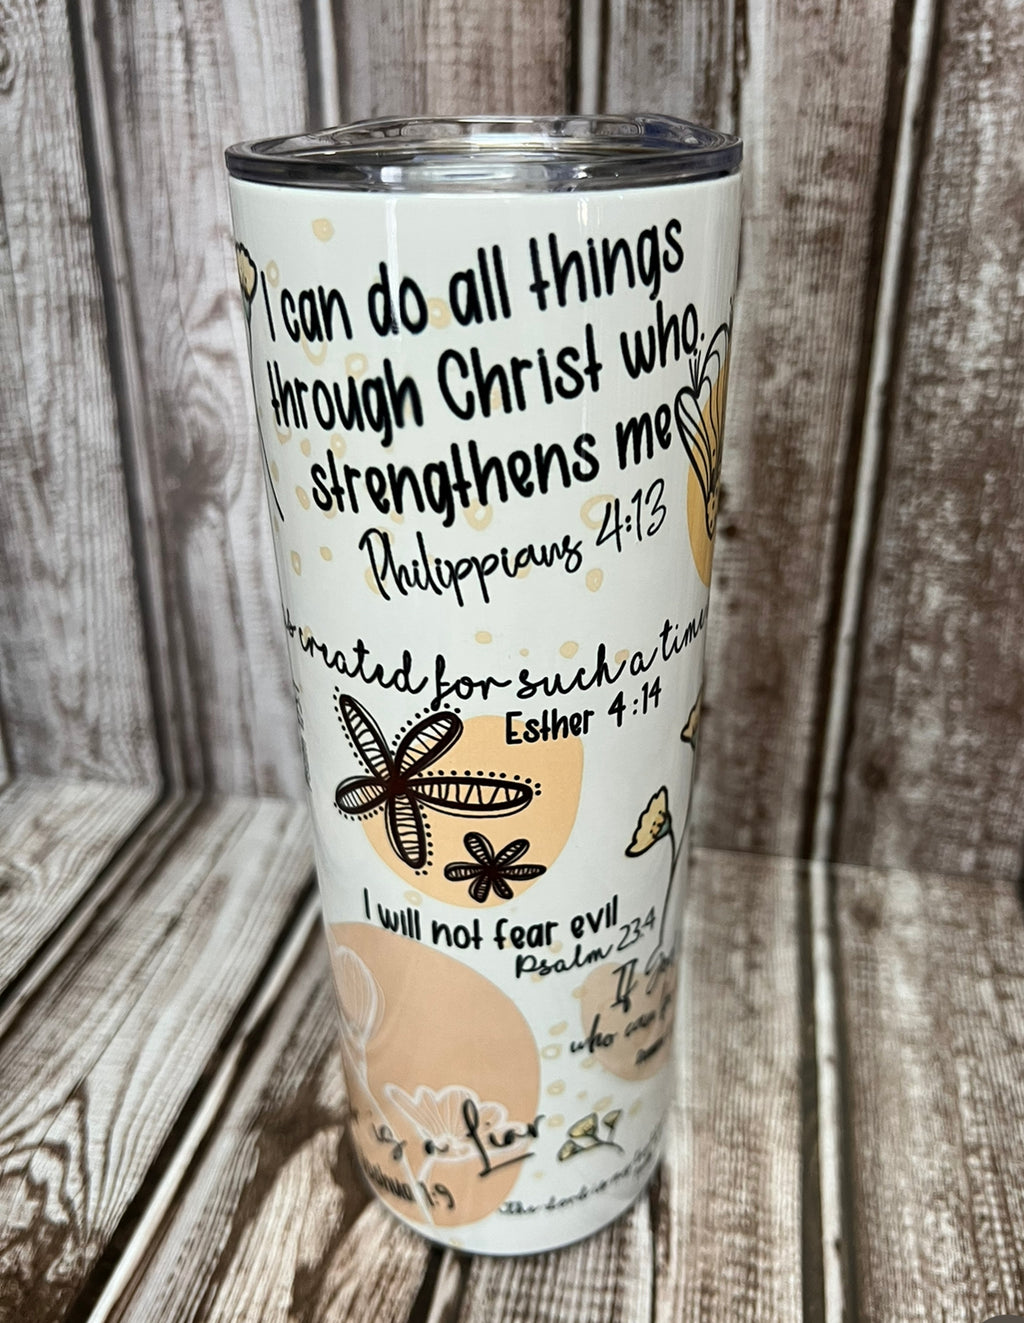 I can do all things
through Christ who
strengthens me
Philippians 4:13
created for such a time
Esther 4:14
I will not fear evil
Psalm 23:4
If
who can
is a liar
1:9
the Lord is